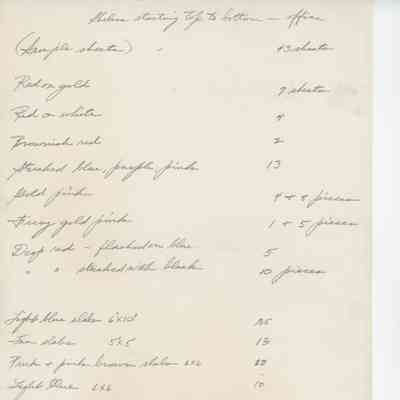 Shelves starting top to bottom — office
(Sample sheets) 43 sheets
Red on gold 9 sheets
Red on white 4
Brownish red 2
Streaked blue, purple, pink 13
Gold pink 4 + 8 pieces
Fiery gold pink 1 + 5 pieces
Deep red - flashed on blue 5
" " streaked with black 10 pieces
Light blue slabs 6x10
Tan slabs 5x5 13
Pink + pinkı brown slabs 6x6 20
Light blue 6x6 10